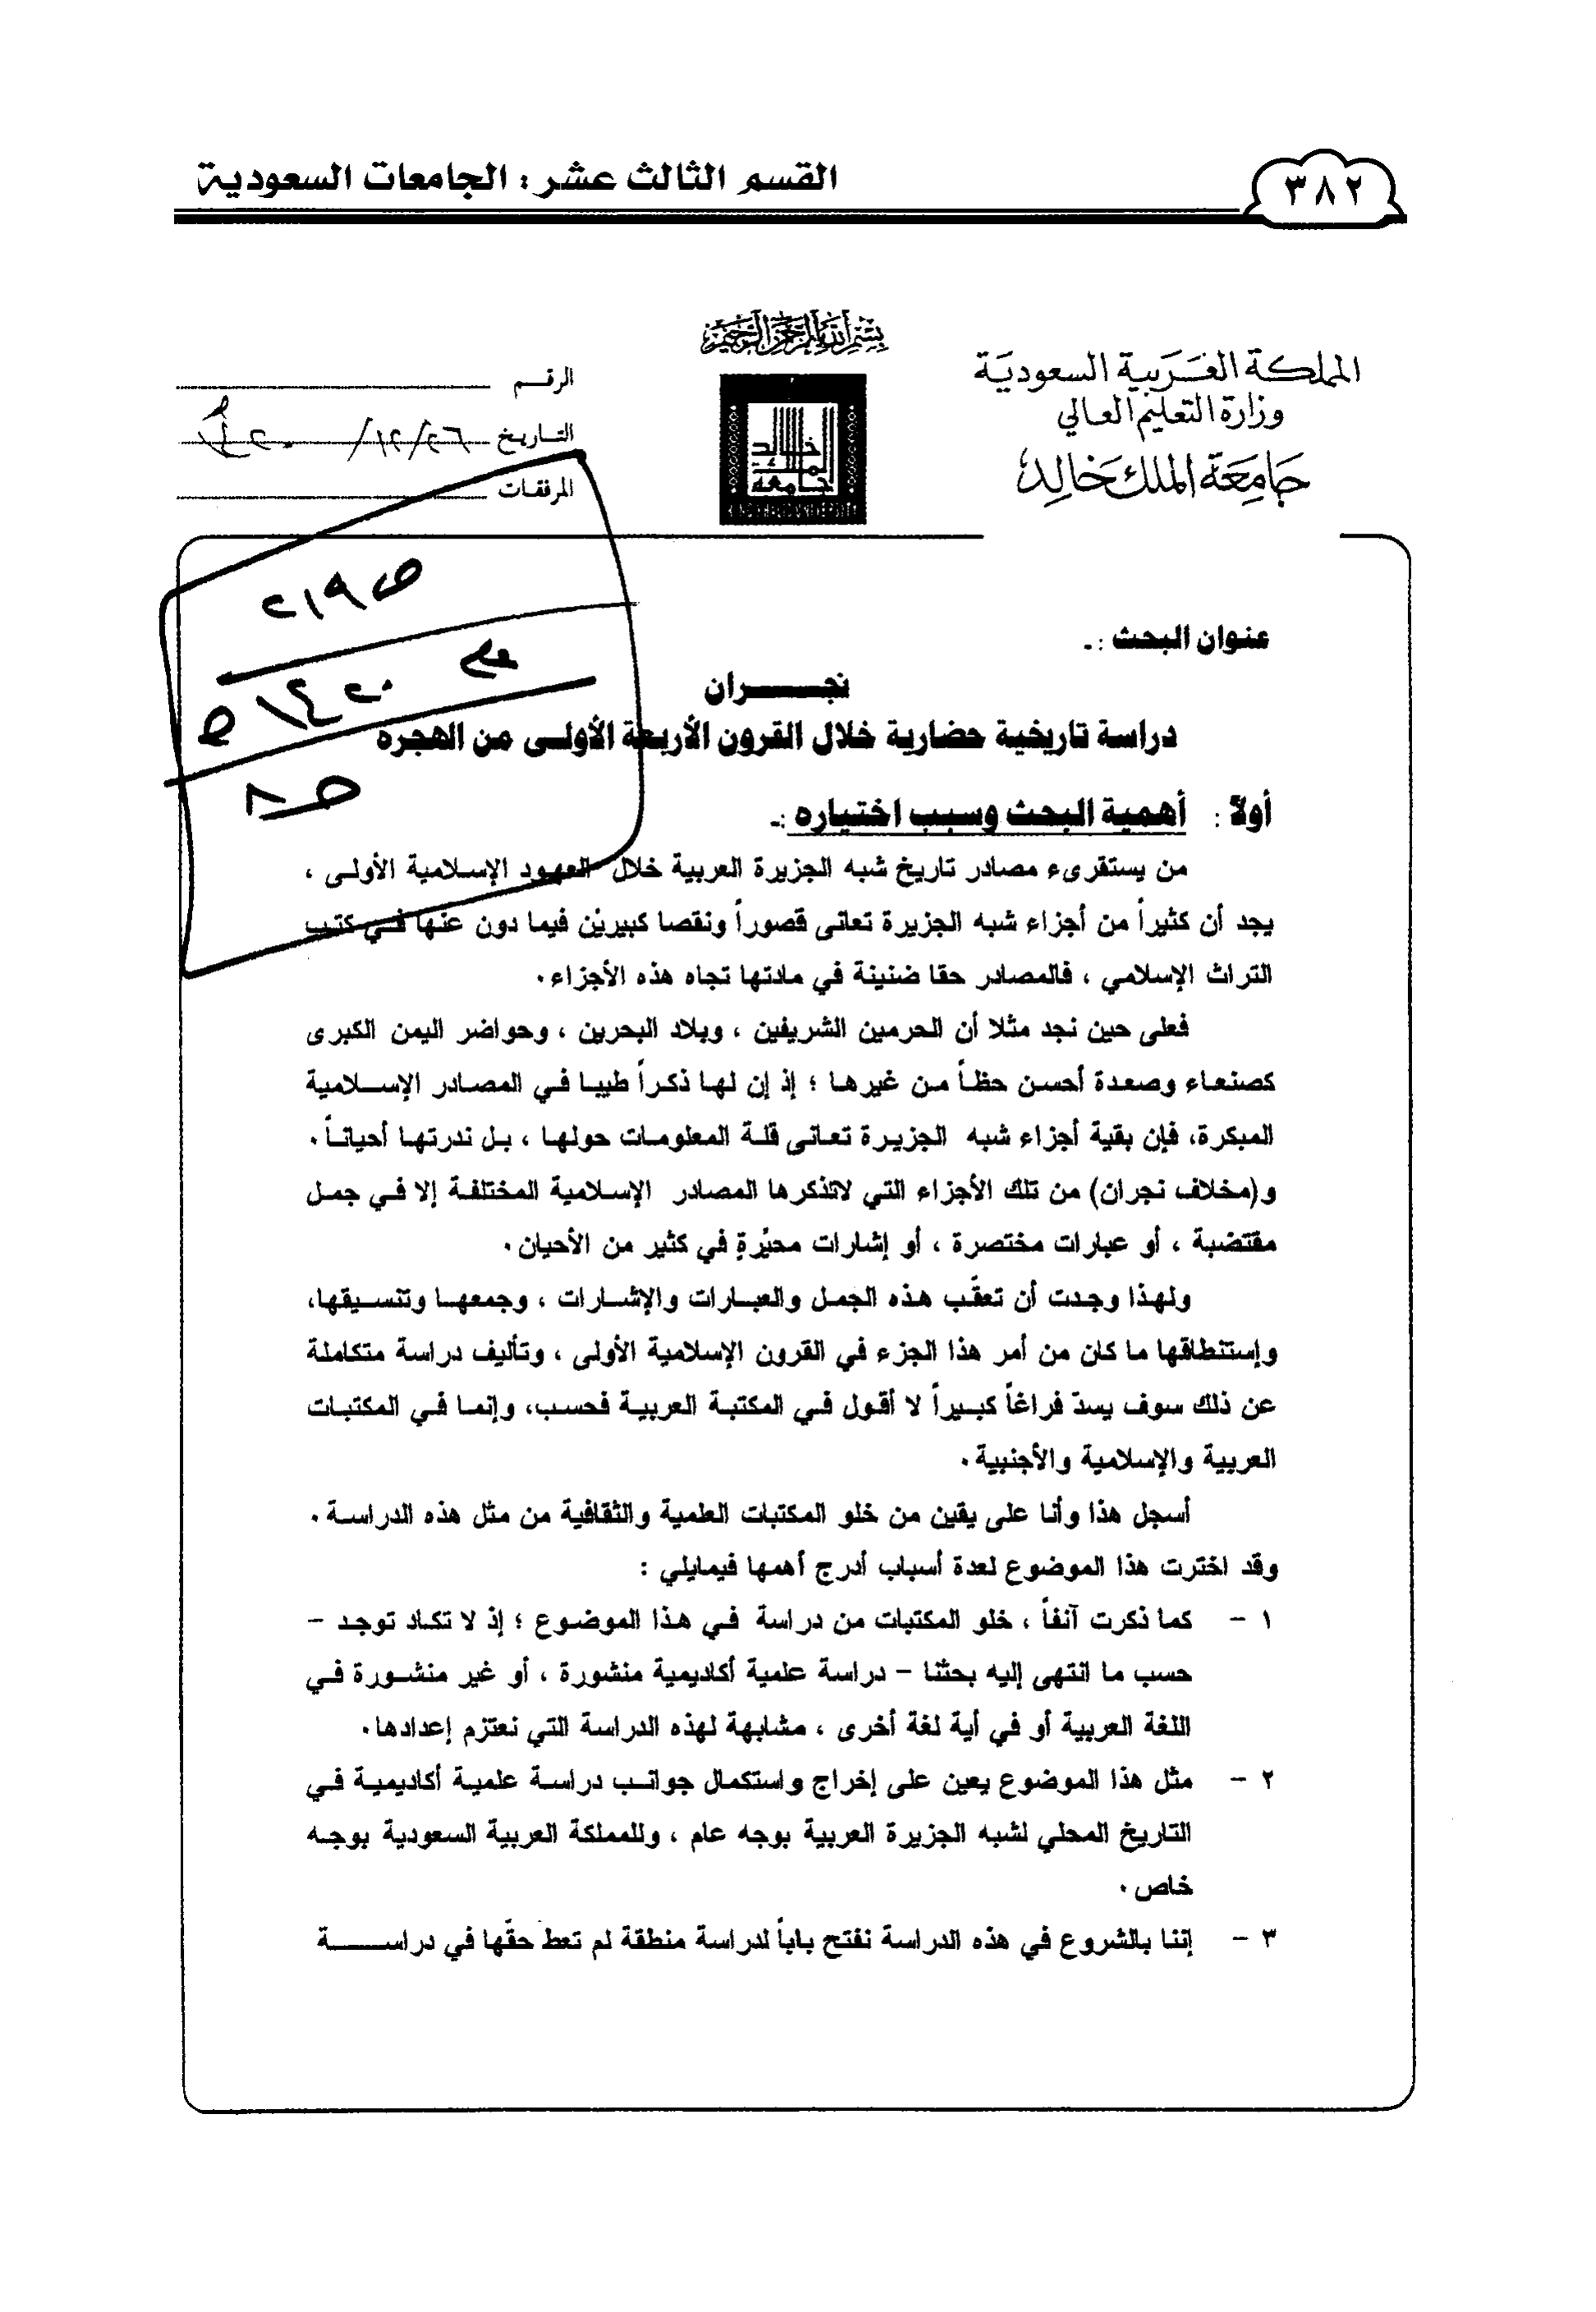 القسم الثالث عشر: الجامعات السعودية
٣٨٢
بسم الله الرحمن الرحيم
المملكة العربية السعودية
وزارة التعليم العالي
جامعة الملك خالد
جامعة الملك خالد
KING KHALID UNIVERSITY
الرقـــم
التـاريخ ٢٦/١٢/١٤٢٠هـ
المرفقـات
ص ٢١٩
عام
١٤٢٠ هـ
عنوان البحث :ـ
نجـــــران
دراسة تاريخية حضارية خلال القرون الأربعة الأولـى من الهجره
أولاً : أهمية البحث وسبب اختياره :ـ
من يستقرىء مصادر تاريخ شبه الجزيرة العربية خلال العهود الإسلامية الأولـى ،
يجد أن كثيراً من أجزاء شبه الجزيرة تعانى قصوراً ونقصا كبيريْن فيما دون عنها فـي كتـب
التراث الإسلامي ، فالمصادر حقا ضنينة في مادتها تجاه هذه الأجزاء٠
فعلى حين نجد مثلا أن الحرمين الشريفين ، وبلاد البحرين ، وحواضر اليمن الكبرى
كصنعـاء وصعـدة أحسـن حظـاً مـن غيرهـا ؛ إذ إن لهـا ذكـراً طيبـا فـي المصـادر الإســلامية
المبكرة، فإن بقية أجزاء شبه الجزيـرة تعـانى قلـة المعلومـات حولهـا ، بـل ندرتهـا أحيانـاً٠
و(مخلاف نجران) من تلك الأجزاء التي لاتذكرها المصادر الإسـلامية المختلفـة إلا فـي جمـل
مقتضبة ، أو عبارات مختصرة ، أو إشارات محيّرةٍ في كثير من الأحيان٠
ولهـذا وجـدت أن تعقّـب هـذه الجمـل والعبـارات والإشـارات ، وجمعهـا وتنسـيقها،
وإستنطاقها ما كان من أمر هذا الجزء في القرون الإسلامية الأولى ، وتأليف دراسة متكاملة
عن ذلك سوف يسدّ فراغاً كبـيراً لا أقول فـي المكتبـة العربيـة فحسـب، وإنمـا فـي المكتبـات
العربية والإسلامية والأجنبية٠
أسجل هذا وأنا على يقين من خلو المكتبات العلمية والثقافية من مثل هذه الدراسـة ٠
وقد اخترت هذا الموضوع لعدة أسباب أدرج أهمها فيمايلي :
١ - كما ذكرت آنفاً ، خلو المكتبات من دراسة فـي هـذا الموضـوع ؛ إذ لا تكـاد توجـد -
حسب ما انتهى إليه بحثنا - دراسة علمية أكاديمية منشورة ، أو غير منشـورة فـي
اللغة العربية أو في أية لغة أخرى ، مشابهة لهذه الدراسة التي نعتزم إعدادها٠
٢ - مثل هذا الموضوع يعين على إخراج واستكمال جوانـب دراسـة علميـة أكاديميـة فـي
التاريخ المحلي لشبه الجزيرة العربية بوجه عام ، وللمملكة العربية السعودية بوجـه
خاص ٠
٣ - إننا بالشروع في هذه الدراسة نفتح باباً لدراسة منطقة لم تعط حقّها في دراســـــة